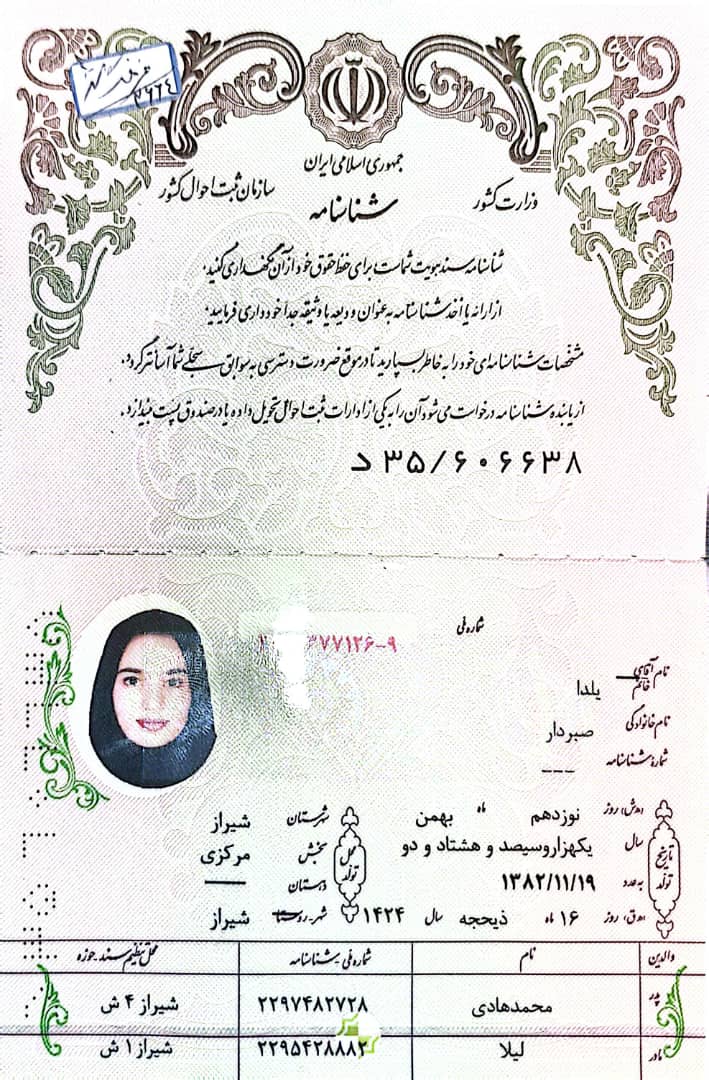 جمهوری اسلامی ایران
وزارت کشور
سازمان ثبت احوال کشور
شناسنامه
شناسنامه سند هویت شماست برای حفظ حقوق خود از آن نگهداری کنید،
از ارائه یا أخذ شناسنامه به عنوان ودیعه یا وثیقه جداً خودداری فرمایید،
مشخصات شناسنامه‌ای خود را به خاطر بسپارید تا در موقع ضرورت دسترسی به سوابق سجلی شما آسانتر گردد.
از یابنده شناسنامه درخواست می‌شود آن را به یکی از ادارات ثبت احوال تحویل داده یا در صندوق پست بیندازد.
د ۳۵/۶۰۶۶۳۸
شماره ملی
۳۷۷۱۲۶-۹
نام آقای خانم یلدا
نام خانوادگی صبردار
شماره شناسنامه ---
تاریخ تولد
(ه.ش) روز نوزدهم ماه بهمن
سال یکهزاروسیصد و هشتاد و دو
به عدد ۱۳۸۲/۱۱/۱۹
(ه.ق) روز ۱۶ ماه ذیحجه سال ۱۴۲۴
محل تولد
شهرستان شیراز
بخش مرکزی
دهستان
شهر-روستا شیراز
والدین نام شماره ملی-شناسنامه محل تنظیم سند-حوزه
پدر محمدهادی ۲۲۹۷۴۸۲۷۲۸ شیراز ۴ ش
مادر لیلا ۲۲۹۵۴۲۸۸۸۲ شیراز ۱ ش